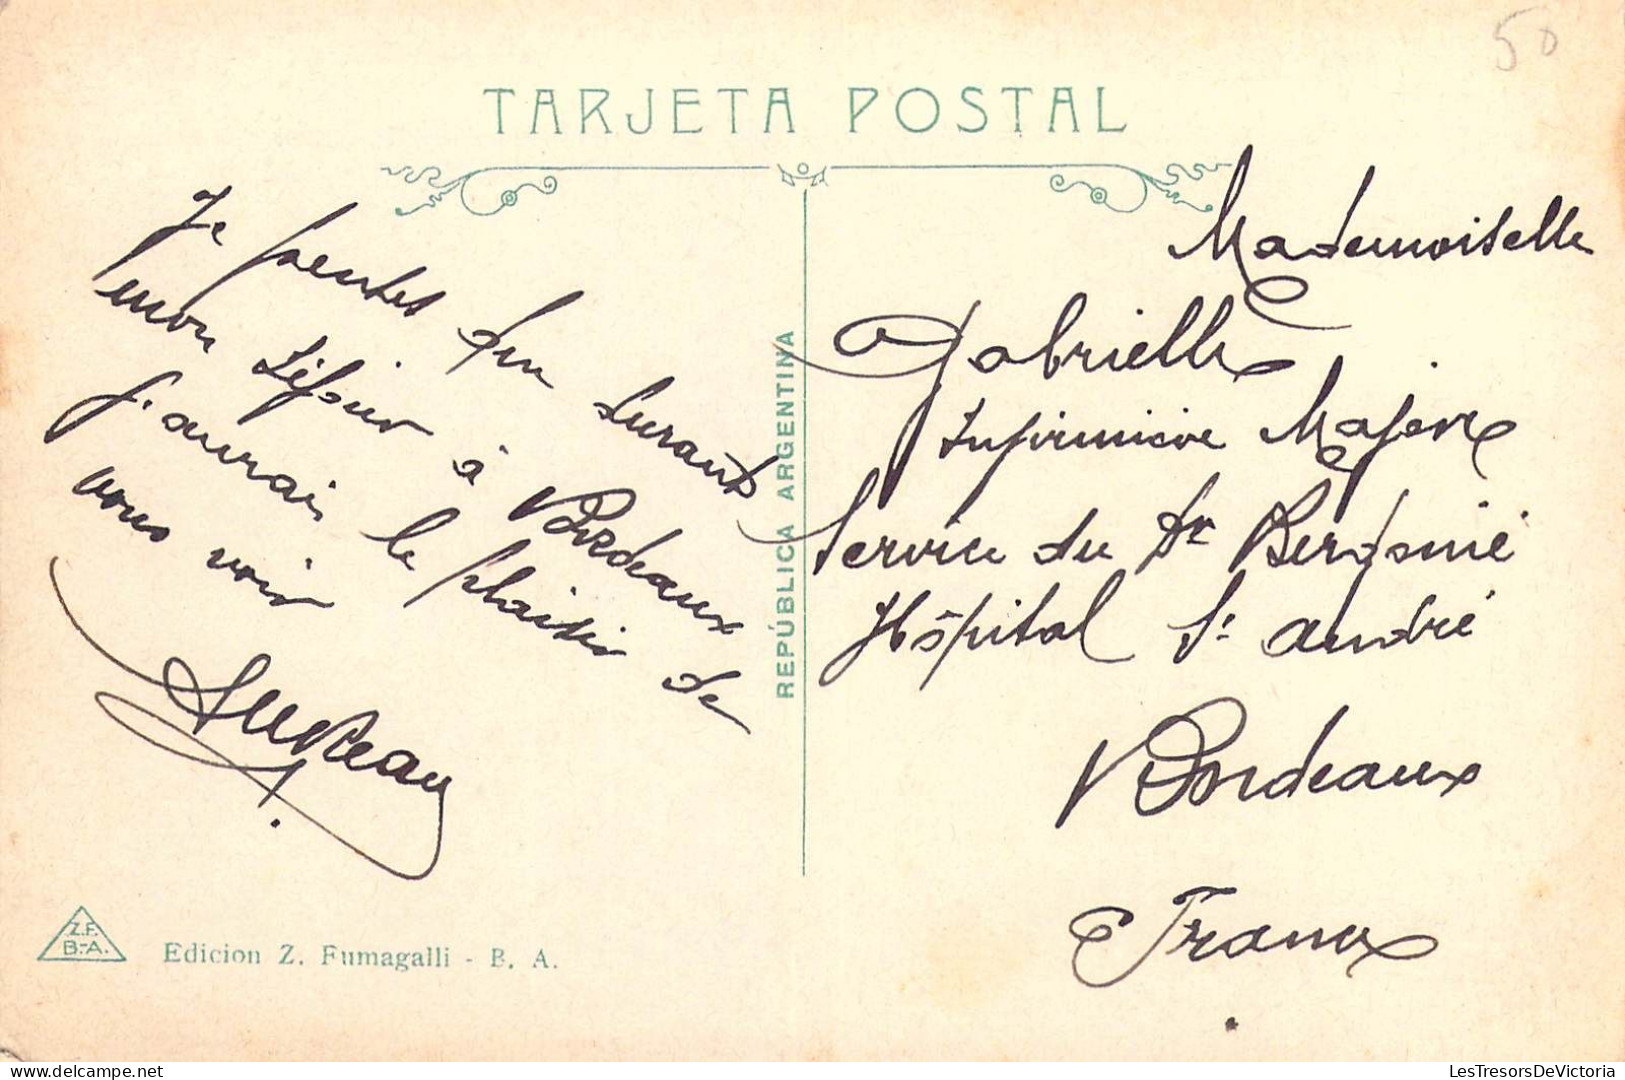 50
TARJETA POSTAL
REPÚBLICA ARGENTINA
Je que durant
mon séjour à Bordeaux
j'aurai le plaisir de
vous voir
Mademoiselle
Gabrielle
Infirmière Majore
Service du Dr Bergonié
Hôpital St André
Bordeaux
France
Z.F.
B.-A.
Edicion Z. Fumagalli - B. A.
delcampe.net
LesTresorsDeVictoria